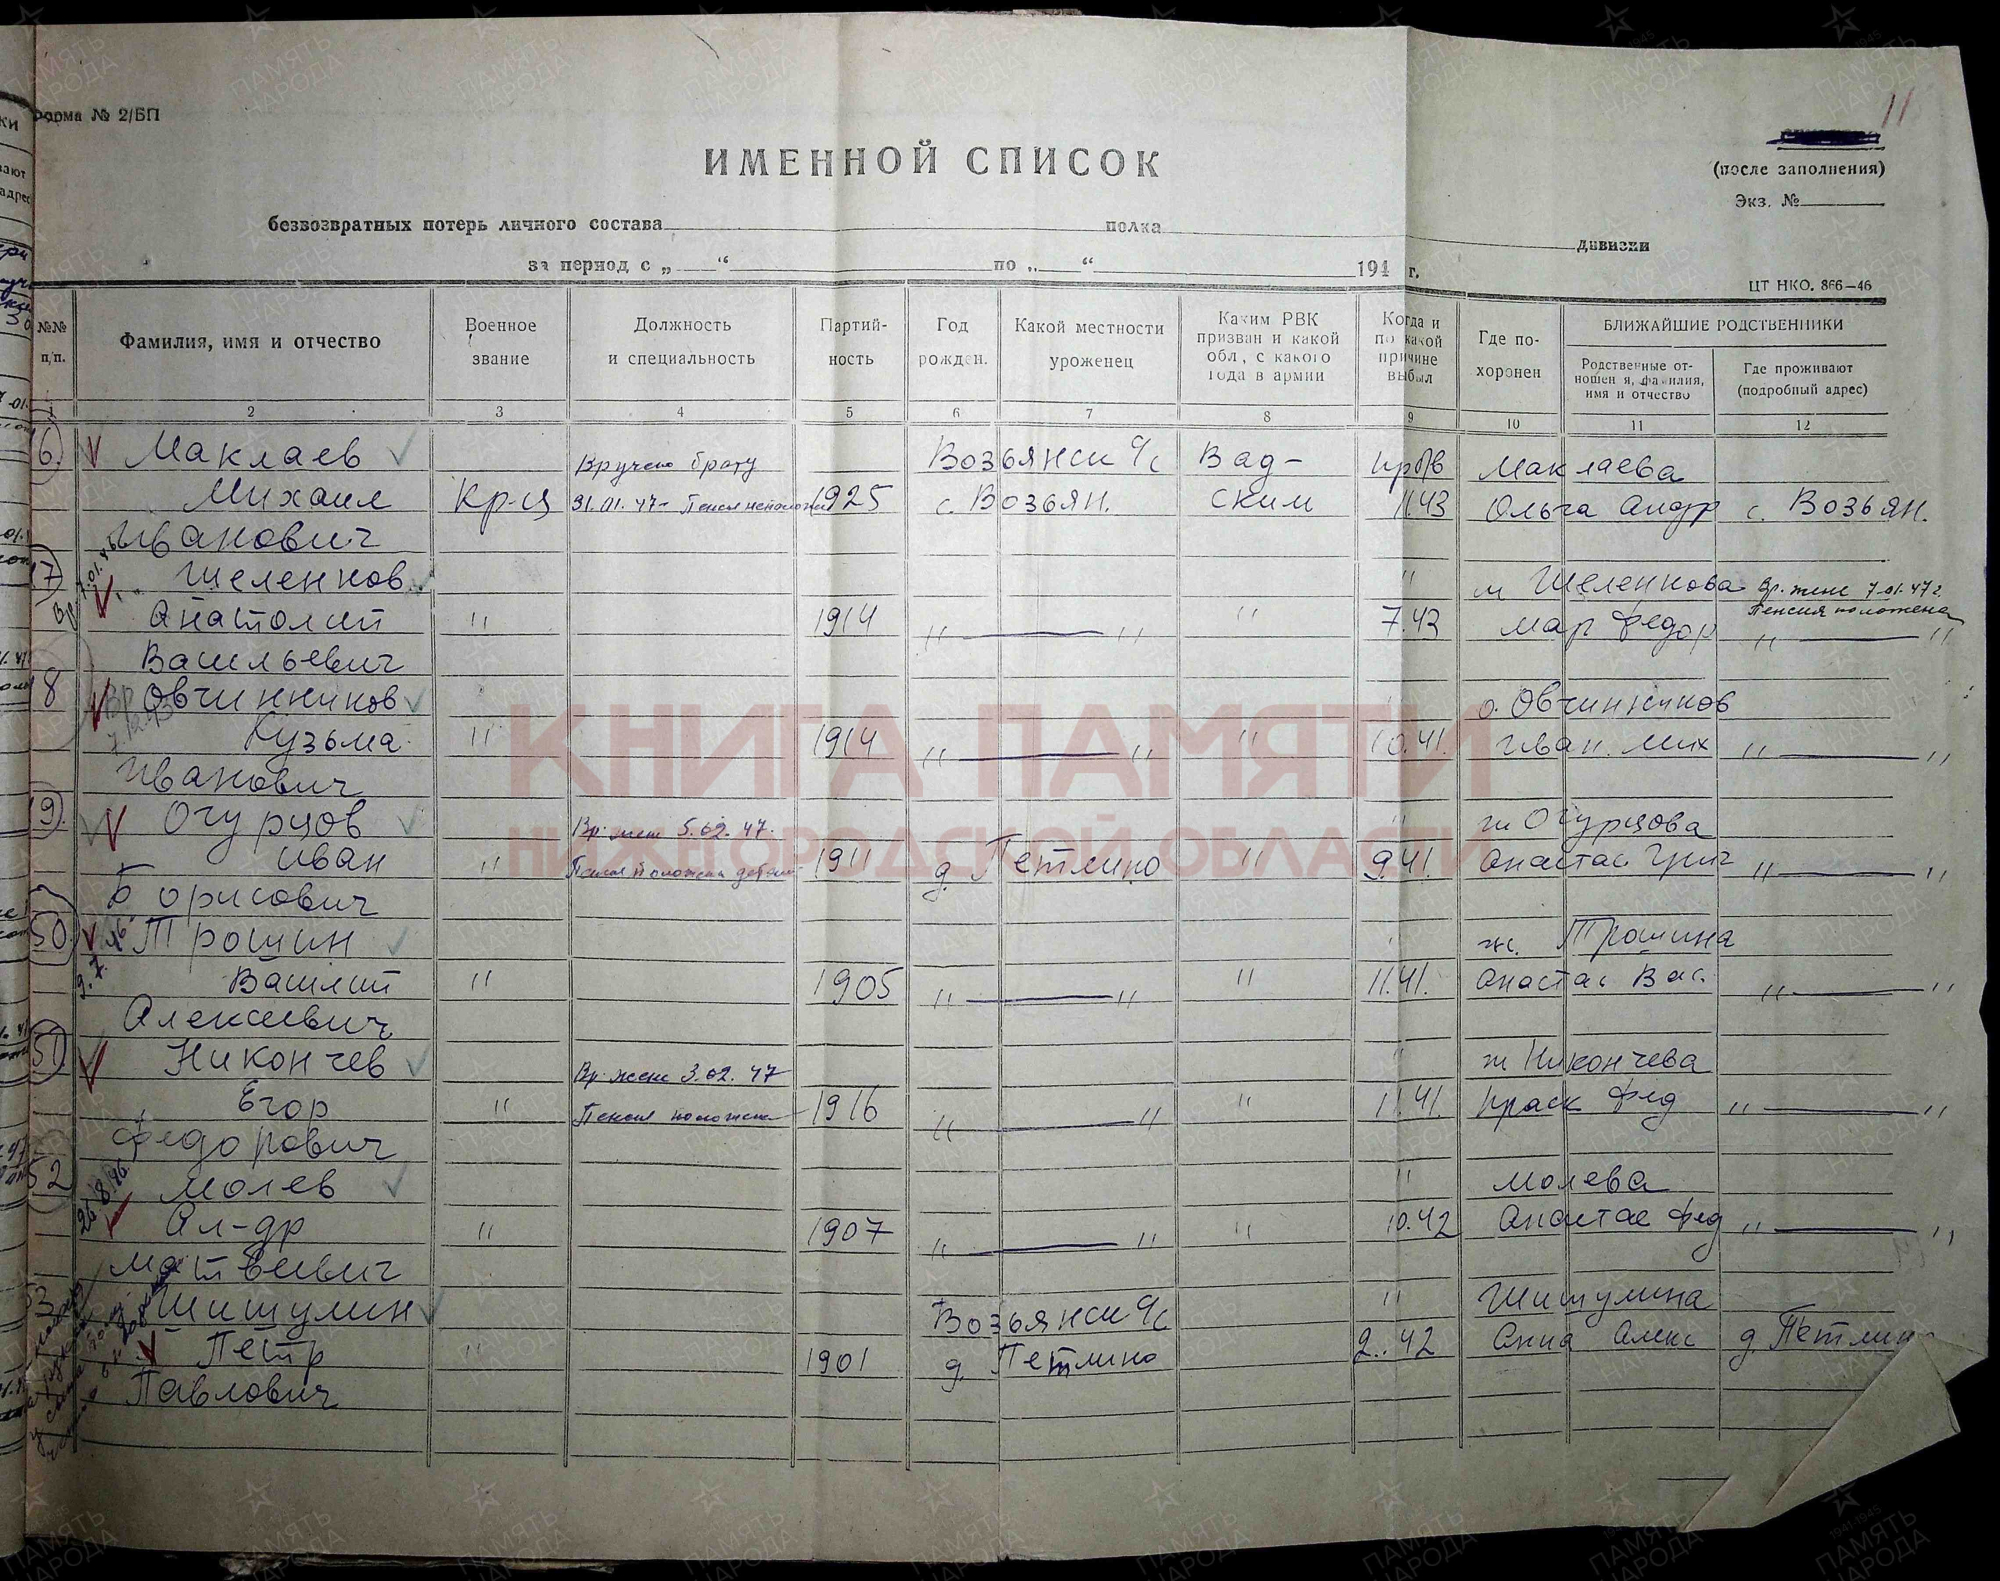 Форма № 2/БП
11
ИМЕННОЙ СПИСОК
(после заполнения)
Экз. №
безвозвратных потерь личного состава полка дивизии
за период с „ “ по „ “ 194 г.
ЦТ НКО. 866—46
№№ п/п.
Фамилия, имя и отчество
Военное звание
Должность и специальность
Партий-ность
Год рожден.
Какой местности уроженец
Каким РВК призван и какой обл., с какого года в армии
Когда и по какой причине выбыл
Где по-хоронен
БЛИЖАЙШИЕ РОДСТВЕННИКИ
Родственные от-ношения, фамилия, имя и отчество
Где проживают (подробный адрес)
2 3 4 5 6 7 8 9 10 11 12
6. Маклаев Вручено брату Возьянск с/с Вад- пр б/в Маклаева
Михаил Кр-ц 31.01.47- 1925 с. Возьян. ским 11.43 Ольга Андр с. Возьян.
Иванович
7 Шеленков " м Шеленкова Вр. жене 7.01.47г.
Анатолий " 1914 " — " " 7.43 Мар Федор Пенсия положена " — "
Васильевич
8 Овчинников о. Овчинников
Кузьма " 1914 " — " " 10.41. Иван. Мих " — "
Иванович
9 Огурцов Вр. жене 5.02.47. " ж Огурцова
Иван " 1911 д. Петлино " 9.41. Анастас Григ " — "
Борисович
50 Трошин ж. Трошина
Василий " 1905 " — " " 11.41. Анастас Вас. " — "
Алексеевич
51 Никончев Вр. жене 3.02.47 " ж Никончева
Егор " Пенсия положена 1916 " — " " 11.41. Праск Фед " — "
Федорович
52 Молев " Молева
26.8.46.
Ал-др " 1907 " — " " 10.42 Анастас Фед " — "
Матвеевич
53 Шишулин Возьянск с/с " Шишулина
Петр " 1901 д. Петлино 2..42 Анна Алекс д. Петлин
Павлович
КНИГА ПАМЯТИ
НИЖЕГОРОДСКОЙ ОБЛАСТИ
ПАМЯТЬ НАРОДА
1941-1945